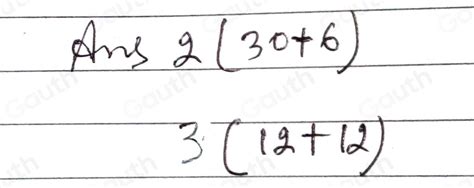 Ans 2 (30+6)
3 (12+12)